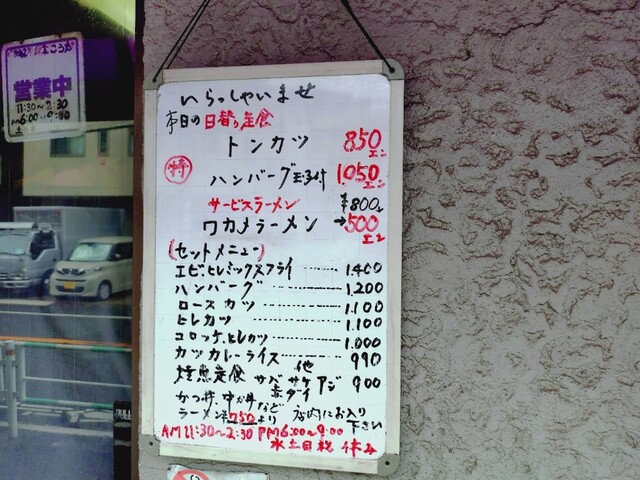 営業中
11:30～2:30
PM6:00～9:00
いらっしゃいませ
本日の日替り定食
トンカツ 850エン
特 ハンバーグ玉子付 1.050エン
サービスラーメン ¥800
ワカメラーメン →500エン
(セットメニュー)
エビ、ヒレミックスフライ ……… 1.400
ハンバーグ ……… 1.200
ロースカツ ……… 1.100
ヒレカツ ……… 1.100
コロッケ、ヒレカツ ……… 1.000
カツカレーライス 990
他
焼魚定食 サバ サケ アジ 900
赤ダイ
かつ丼、中か丼 など
ラーメン 750より 店内にお入り下さい
AM11:30～2:30 PM6:00～9:00
水土日祝 休み